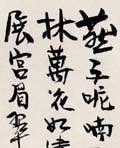 燕子呢喃
林萬花如繡
展宮眉翠